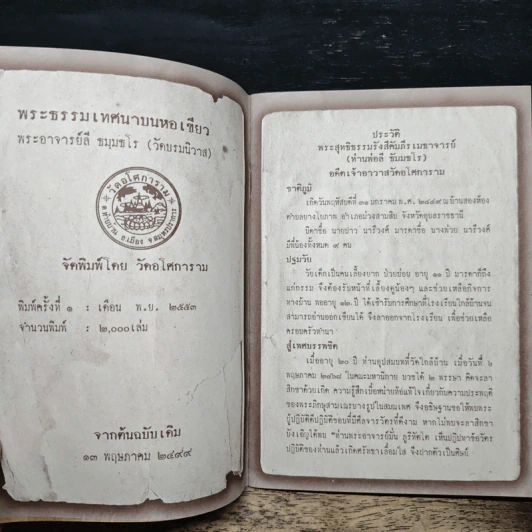 พระธรรมเทศนาบนหอเขียว
พระอาจารย์ลี ธมฺมธโร (วัดบรมนิวาส)
วัดอโศการาม
ต.ท้ายบ้าน อ.เมือง จ.สมุทรปราการ
จัดพิมพ์โดย วัดอโศการาม
พิมพ์ครั้งที่ ๑ : เดือน พ.ย. ๒๕๕๓
จำนวนพิมพ์ : ๒,๐๐๐เล่ม
จากต้นฉบับเดิม
๑๓ พฤษภาคม ๒๔๙๙
ประวัติ
พระสุทธิธรรมรังสีคัมภีรเมธาจารย์
(ท่านพ่อลี ธัมมธโร)
อดีตเจ้าอาวาสวัดอโศการาม
ชาติภูมิ
เกิดวันพฤหัสบดีที่ ๓๑ มกราคม พ.ศ. ๒๔๔๙ ณ บ้านสองห้อง
ตำบลยางโยภาพ อำเภอม่วงสามสิบ จังหวัดอุบลราชธานี
บิดาชื่อ นายปาว นารีวงศ์ มารดาชื่อ นางพ่วย นารีวงศ์
มีพี่น้องทั้งหมด ๙ คน
ปฐมวัย
วัยเด็กเป็นคนเลี้ยงยาก ป่วยบ่อย อายุ ๑๑ ปี มารดาก็ถึง
แก่กรรม จึงต้องรับหน้าที่เลี้ยงดูน้องๆ และช่วยเหลือกิจการ
ทางบ้าน พออายุ ๑๒ ปี ได้เข้ารับการศึกษาที่โรงเรียนใกล้บ้านจน
สามารถอ่านออกเขียนได้ จึงลาออกจากโรงเรียน เพื่อช่วยเหลือ
ครอบครัวทำนา
สู่เพศบรรพชิต
เมื่ออายุ ๒๐ ปี ท่านอุปสมบทที่วัดใกล้บ้าน เมื่อวันที่ ๖
พฤษภาคม ๒๔๖๘ ในคณะมหานิกาย บวชได้ ๒ พรรษา คิดจะลา
สิกขาด้วยเกิด ความรู้สึกเบื่อหน่ายท้อแท้ใจเกี่ยวกับความประพฤติ
ของพระภิกษุสามเณรบางรูปในสมณเพศ จึงอธิษฐานขอให้พบพระ
ผู้ปฏิบัติดีปฏิบัติชอบที่มีศีลจารวัตรที่ดีงาม หากไม่พบจะลาสิกขา
บังเอิญได้พบ "ท่านพระอาจารย์มั่น ภูริทัตโต เห็นปฏิปทาข้อวัตร
ปฏิบัติของท่านแล้วเกิดศรัทธาเลื่อมใส จึงฝากตัวเป็นศิษย์